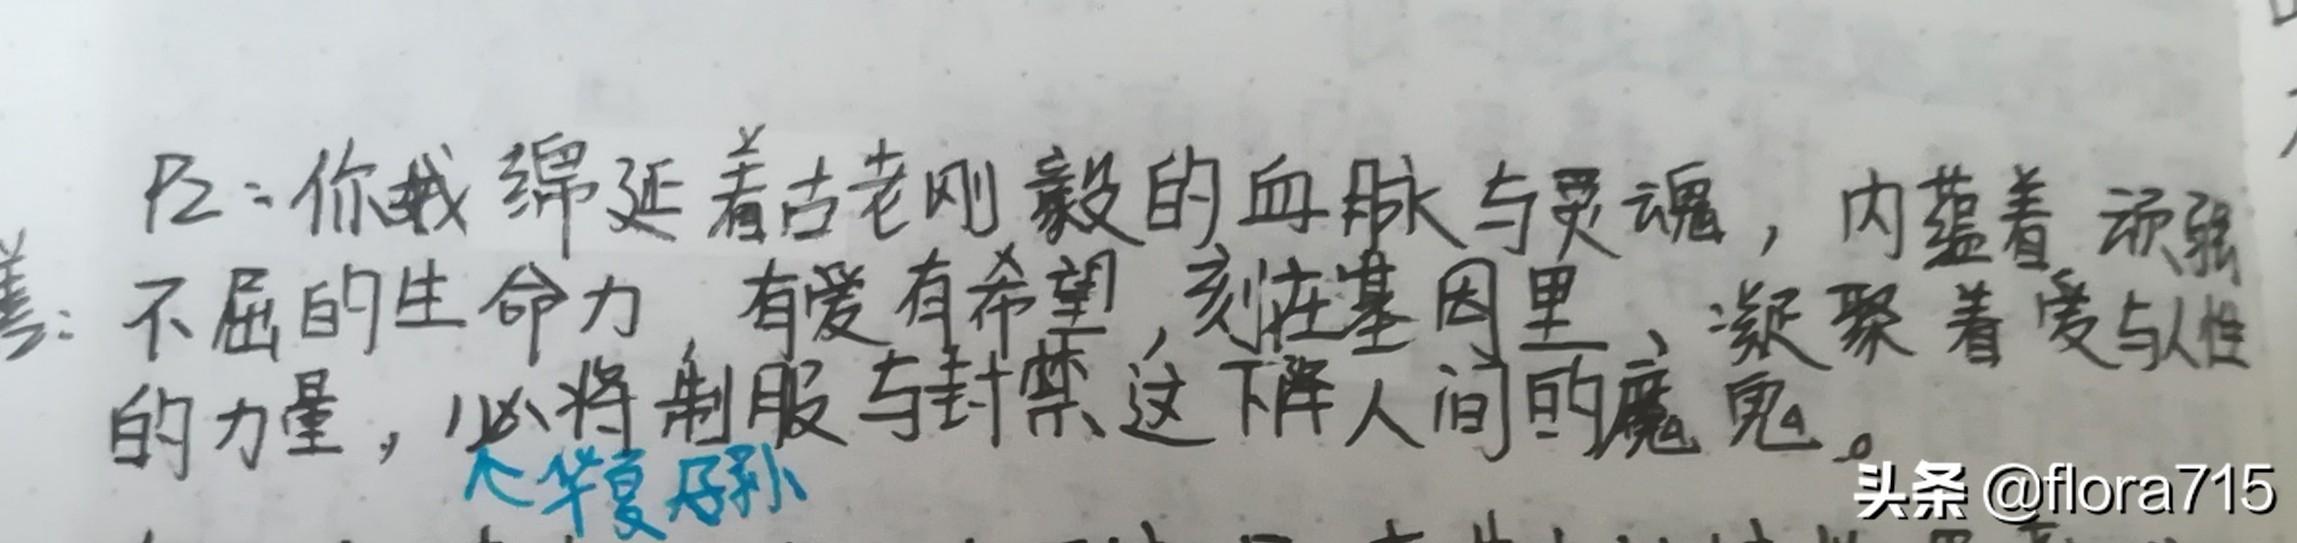 P2：你我绵延着古老刚毅的血脉与灵魂，内蕴着顽强
不屈的生命力，有爱有希望，刻在基因里、凝聚着爱与人性
的力量，必将制服与封禁这下降人间的魔鬼。
华夏好孙
头条 @flora715